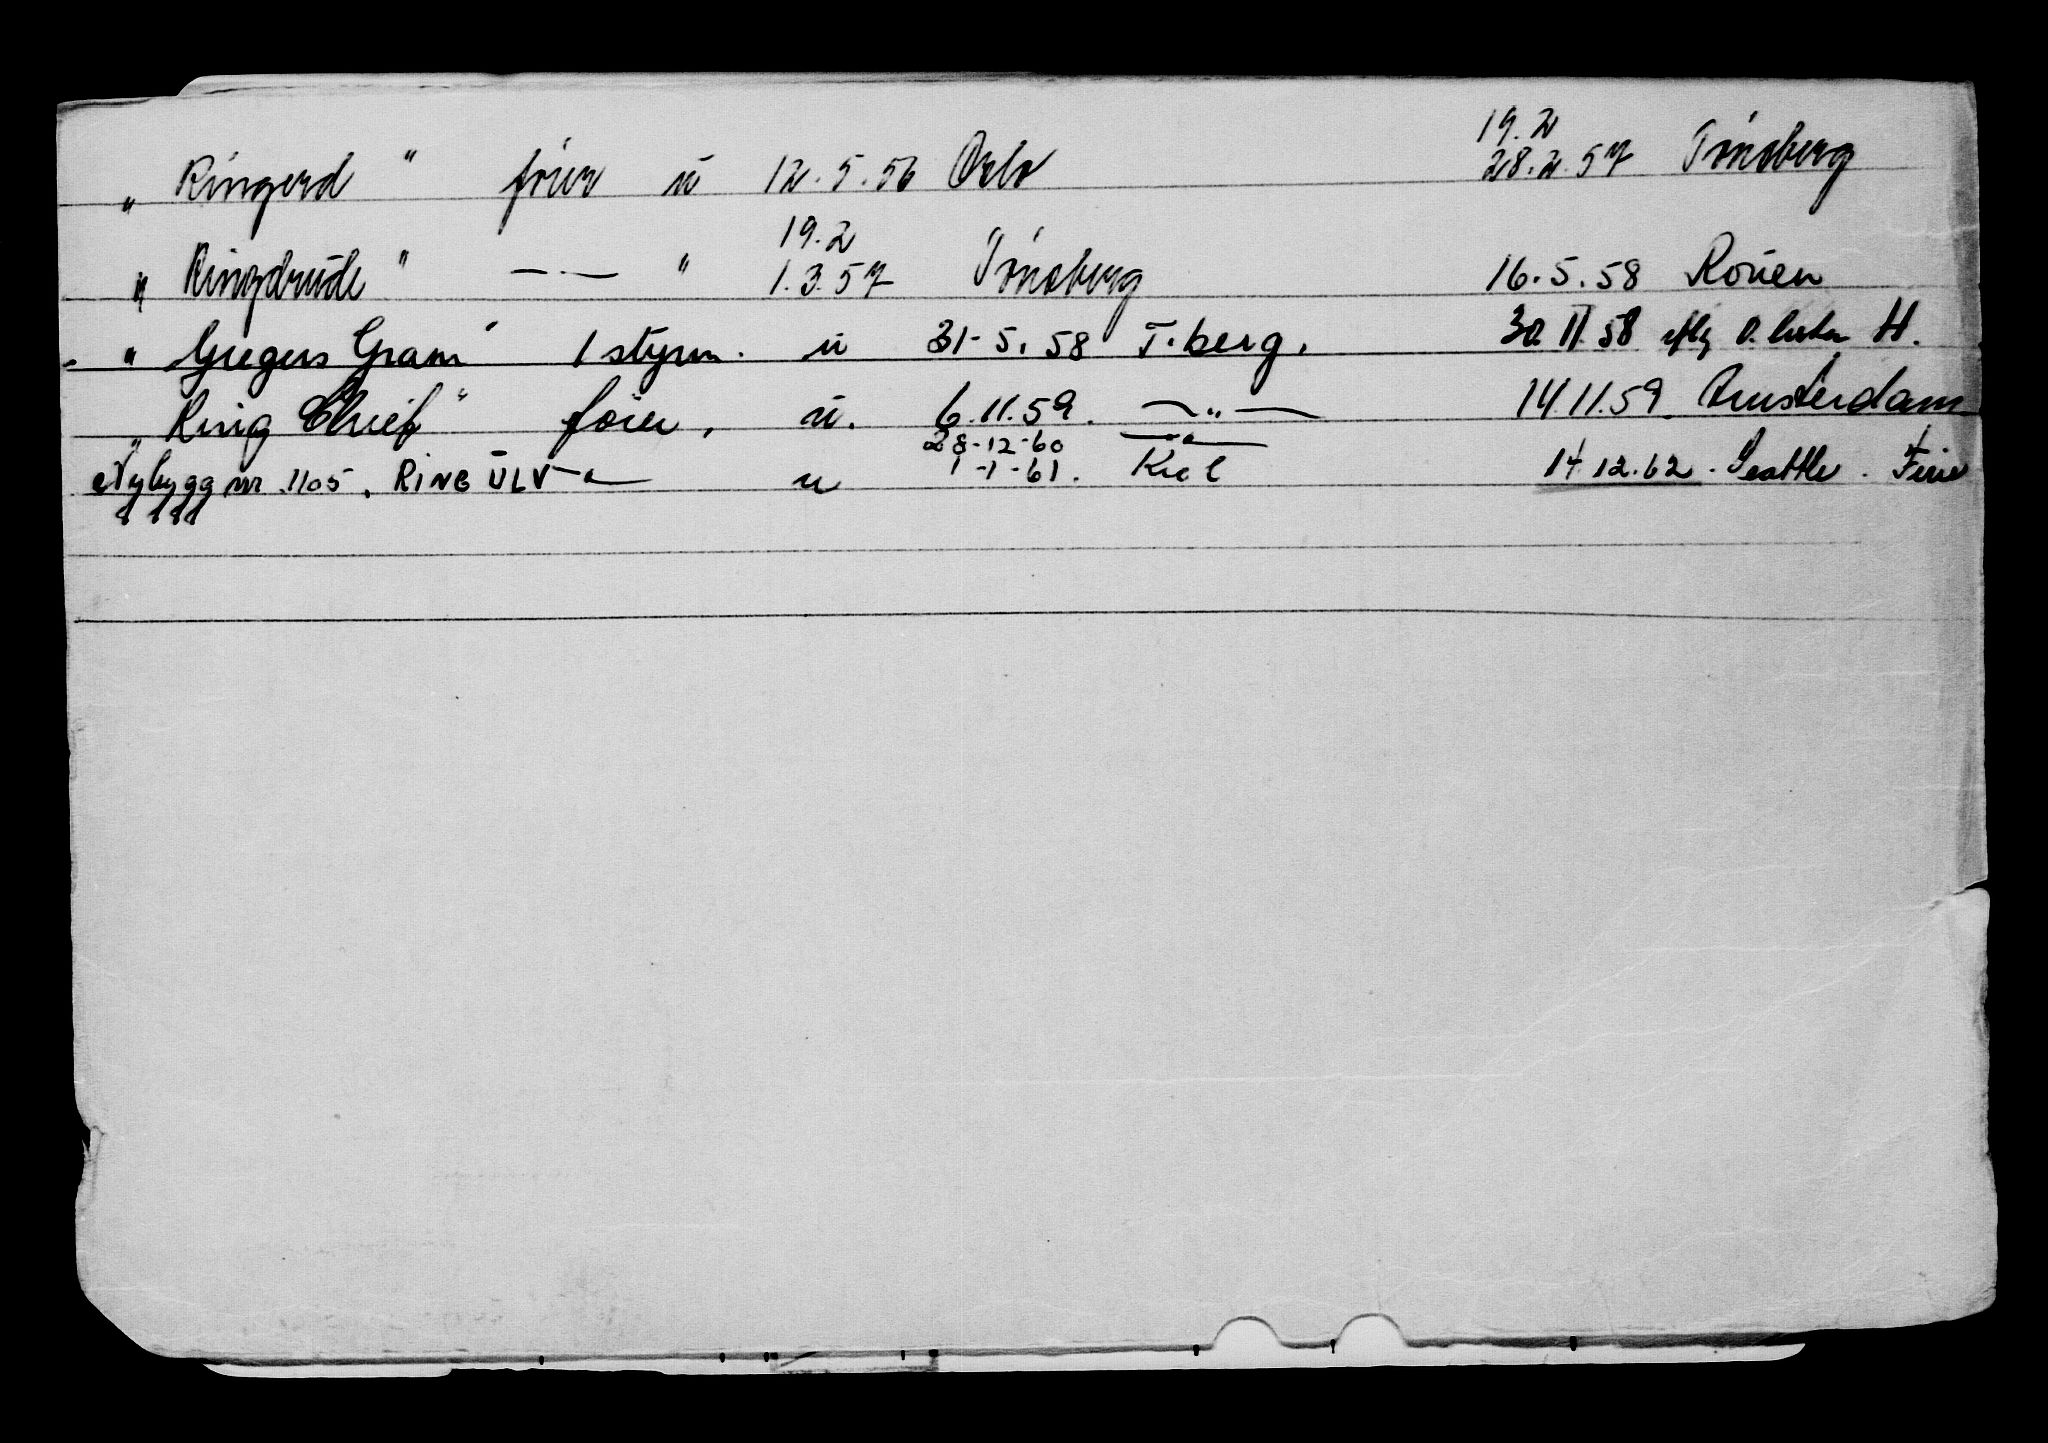 19.2
„ Ringerd " fører u 12.5.56 Oslo 28.2.57 Tønsberg
19.2
„ Ringdrude " — — " 1.3.57 Tønsberg 16.5.58 Rouen
„ Gregers Gram " 1 styrm. u 31-5.58 T.berg. 30.11.58 H.
„ Ring Chief " fører, u. 6.11.59. —"— 14.11.59. Amsterdam
28-12-60 —"—
Nybygg nr. 1105. RING ULV —"— u 1-1-61. Kiel 14.12.62. Seattle. Ferie